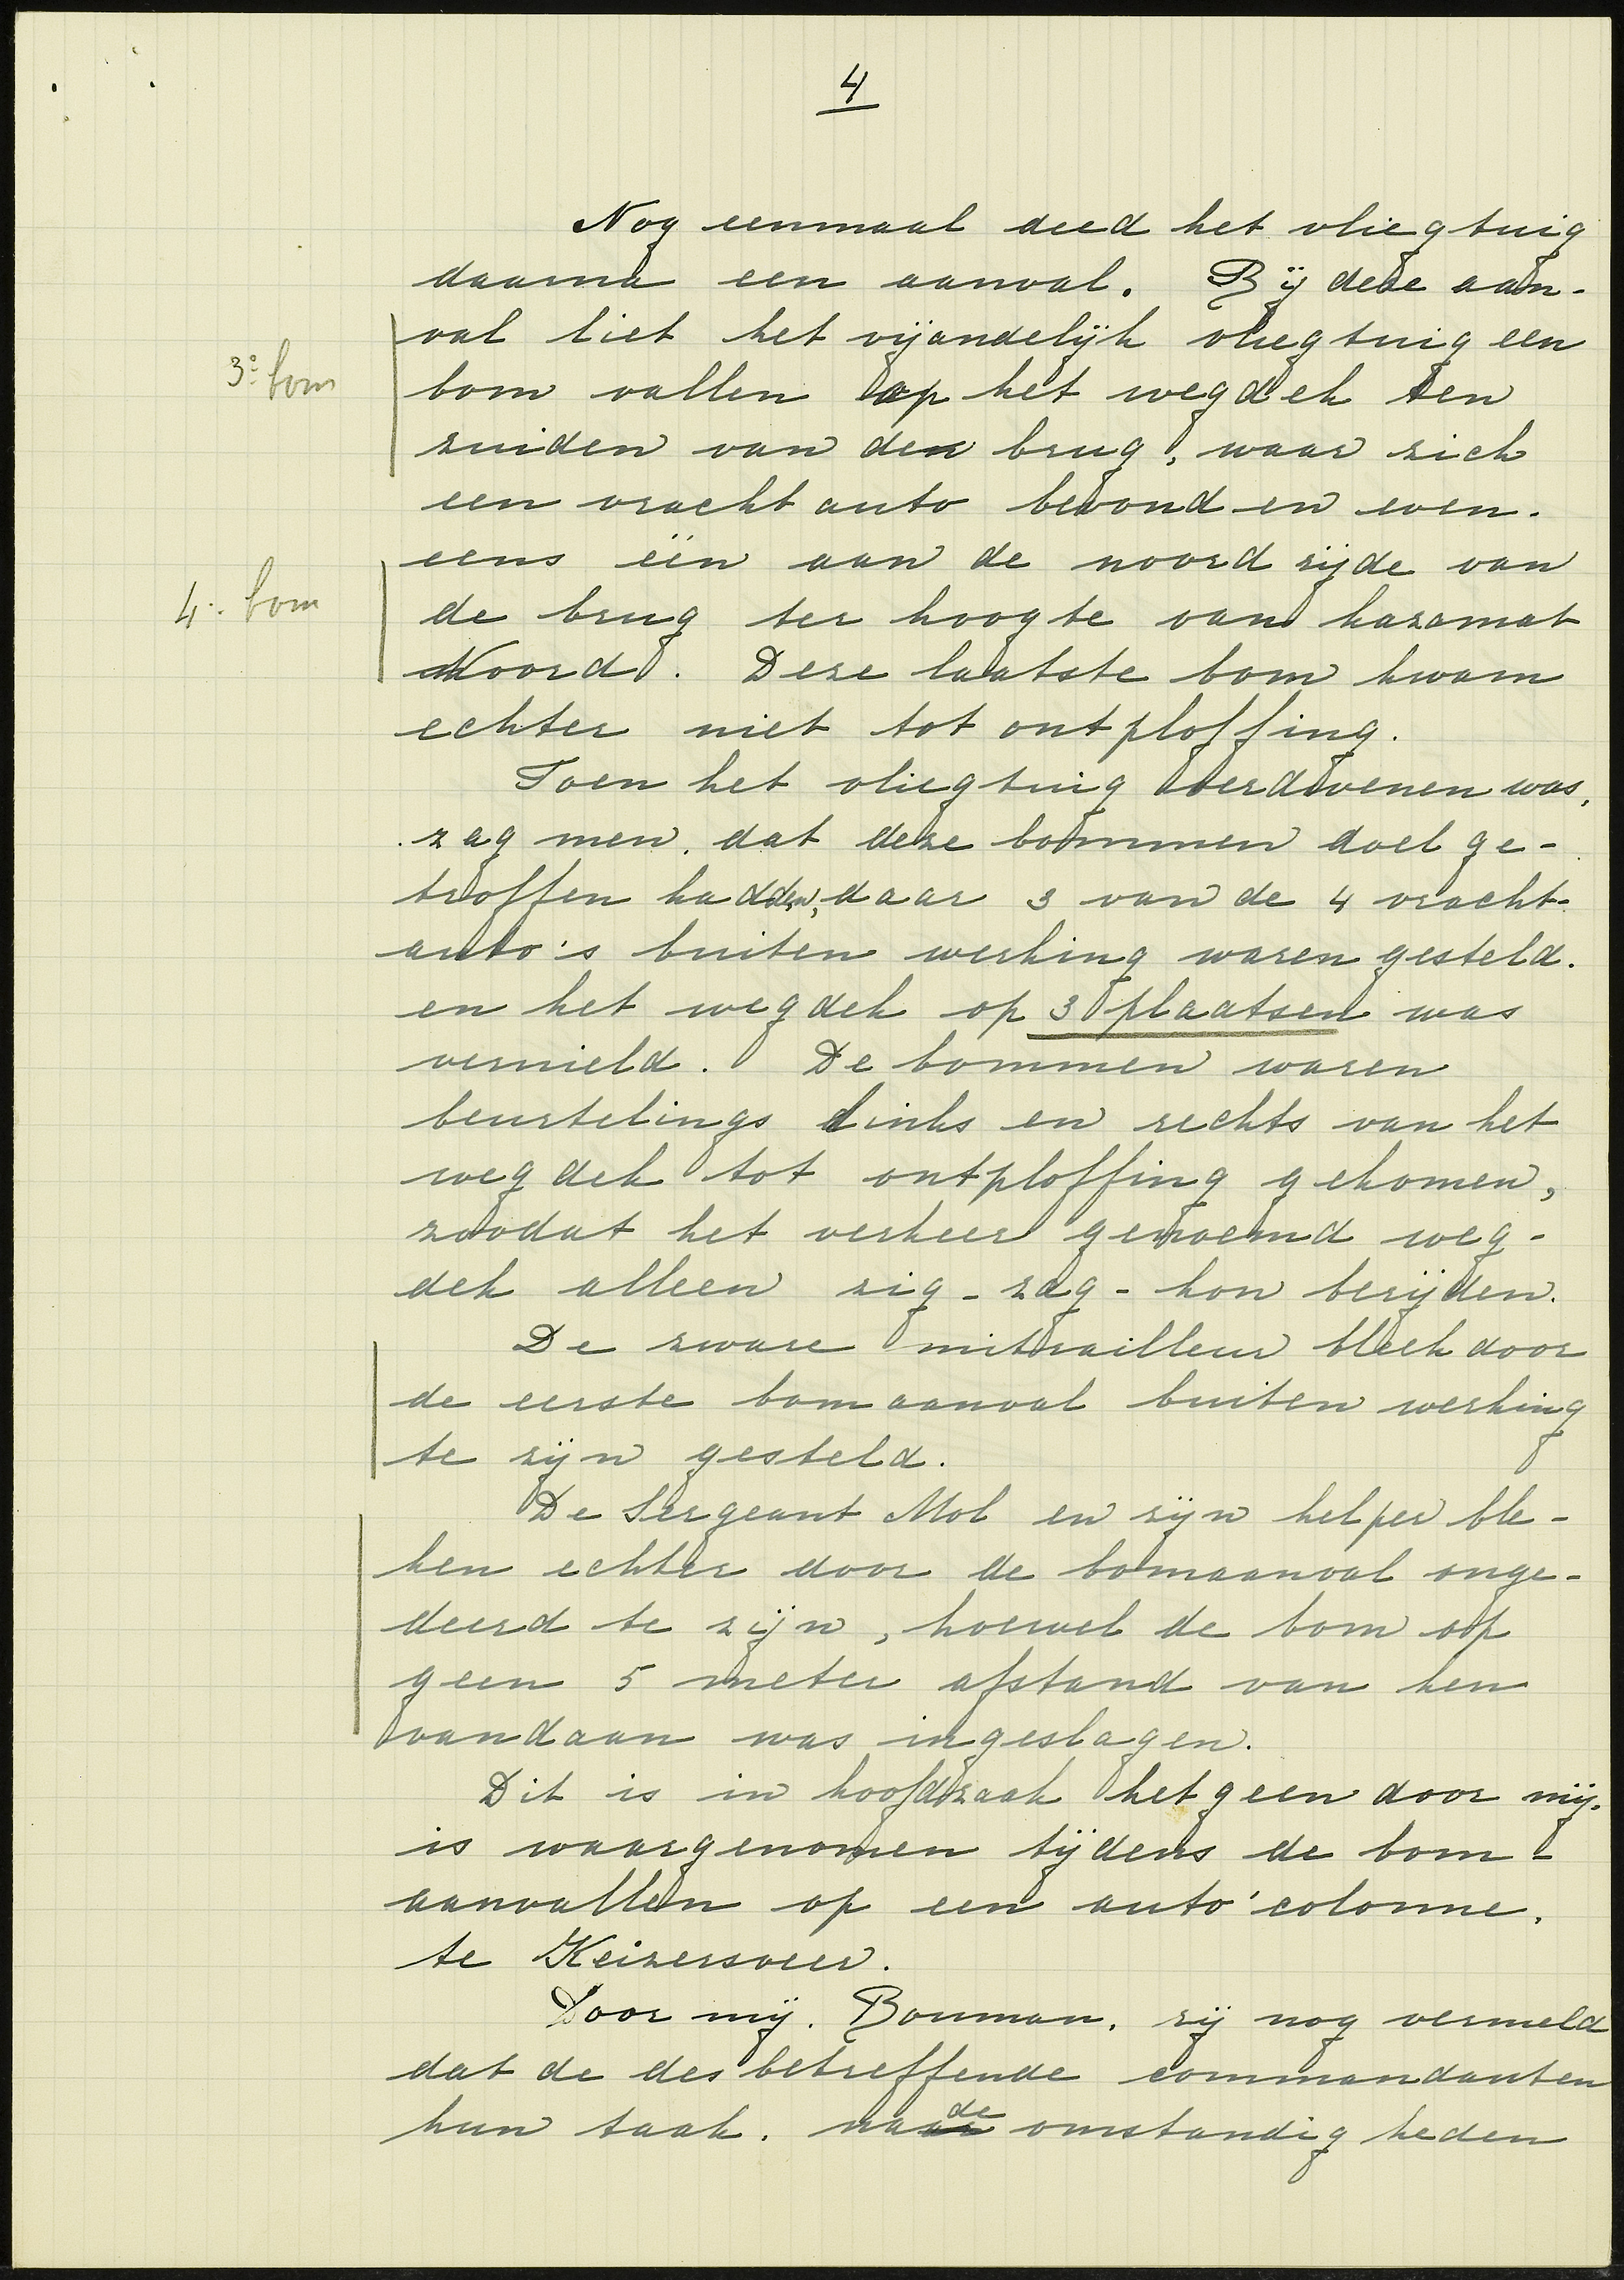 4
Nog eenmaal deed het vliegtuig
daarna een aanval. Bij deze aan-
val liet het vijandelijk vliegtuig een
3e bom
bom vallen op het wegdek ten
zuiden van den brug, waar zich
een vracht auto bevond en even-
eens één aan de noord zijde van
4e bom
de brug ter hoogte van kazamat
Noord. Deze laatste bom kwam
echter niet tot ontploffing.
Toen het vliegtuig verdwenen was,
zag men, dat deze bommen doel ge-
troffen hadden, daar 3 van de 4 vracht-
auto's buiten werking waren gesteld.
en het wegdek op 3 plaatsen was
vernield. De bommen waren
beurtelings links en rechts van het
wegdek tot ontploffing gekomen,
zoodat het verkeer genoemd weg-
dek alleen zig-zag-kon berijden.
De zware mitrailleur bleek door
de eerste bomaanval buiten werking
te zijn gesteld.
De Sergeant Mol en zijn helper ble-
ken echter door de bomaanval onge-
deerd te zijn, hoewel de bom op
geen 5 meter afstand van hen
vandaan was ingeslagen.
Dit is in hoofdzaak hetgeen door mij.
is waargenomen tijdens de bom-
aanvallen op een auto'colonne,
te Keizersveer.
Door mij. Bouman. zij nog vermeld
dat de desbetreffende commandanten
hun taak. naar de omstandigheden